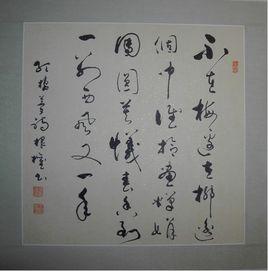 不在梅邊在柳邊
個中誰拾畫嬋娟
團圓莫憶春香到
一別西風又一年
紅樓夢詩 書